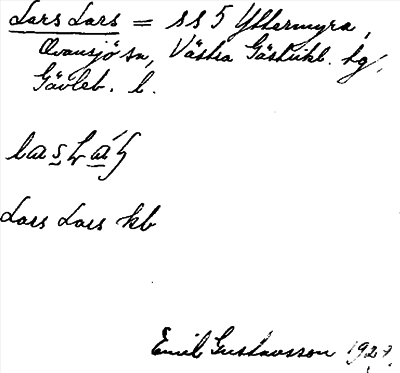 Lars Lars = ss 5 Yttermyra,
Ovansjö sn, Västra Gästrikl. tg,
Gävleb. l.
Lars Lars kb
Emil Gustavsson 1927.